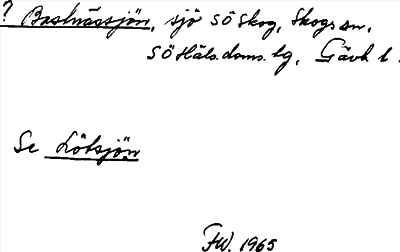 ? Bastnässjön, sjö SÖ Skog, Skogs sn,
SÖ Häls. doms. tg, Gävb l.
Se Lötsjön
FW. 1965